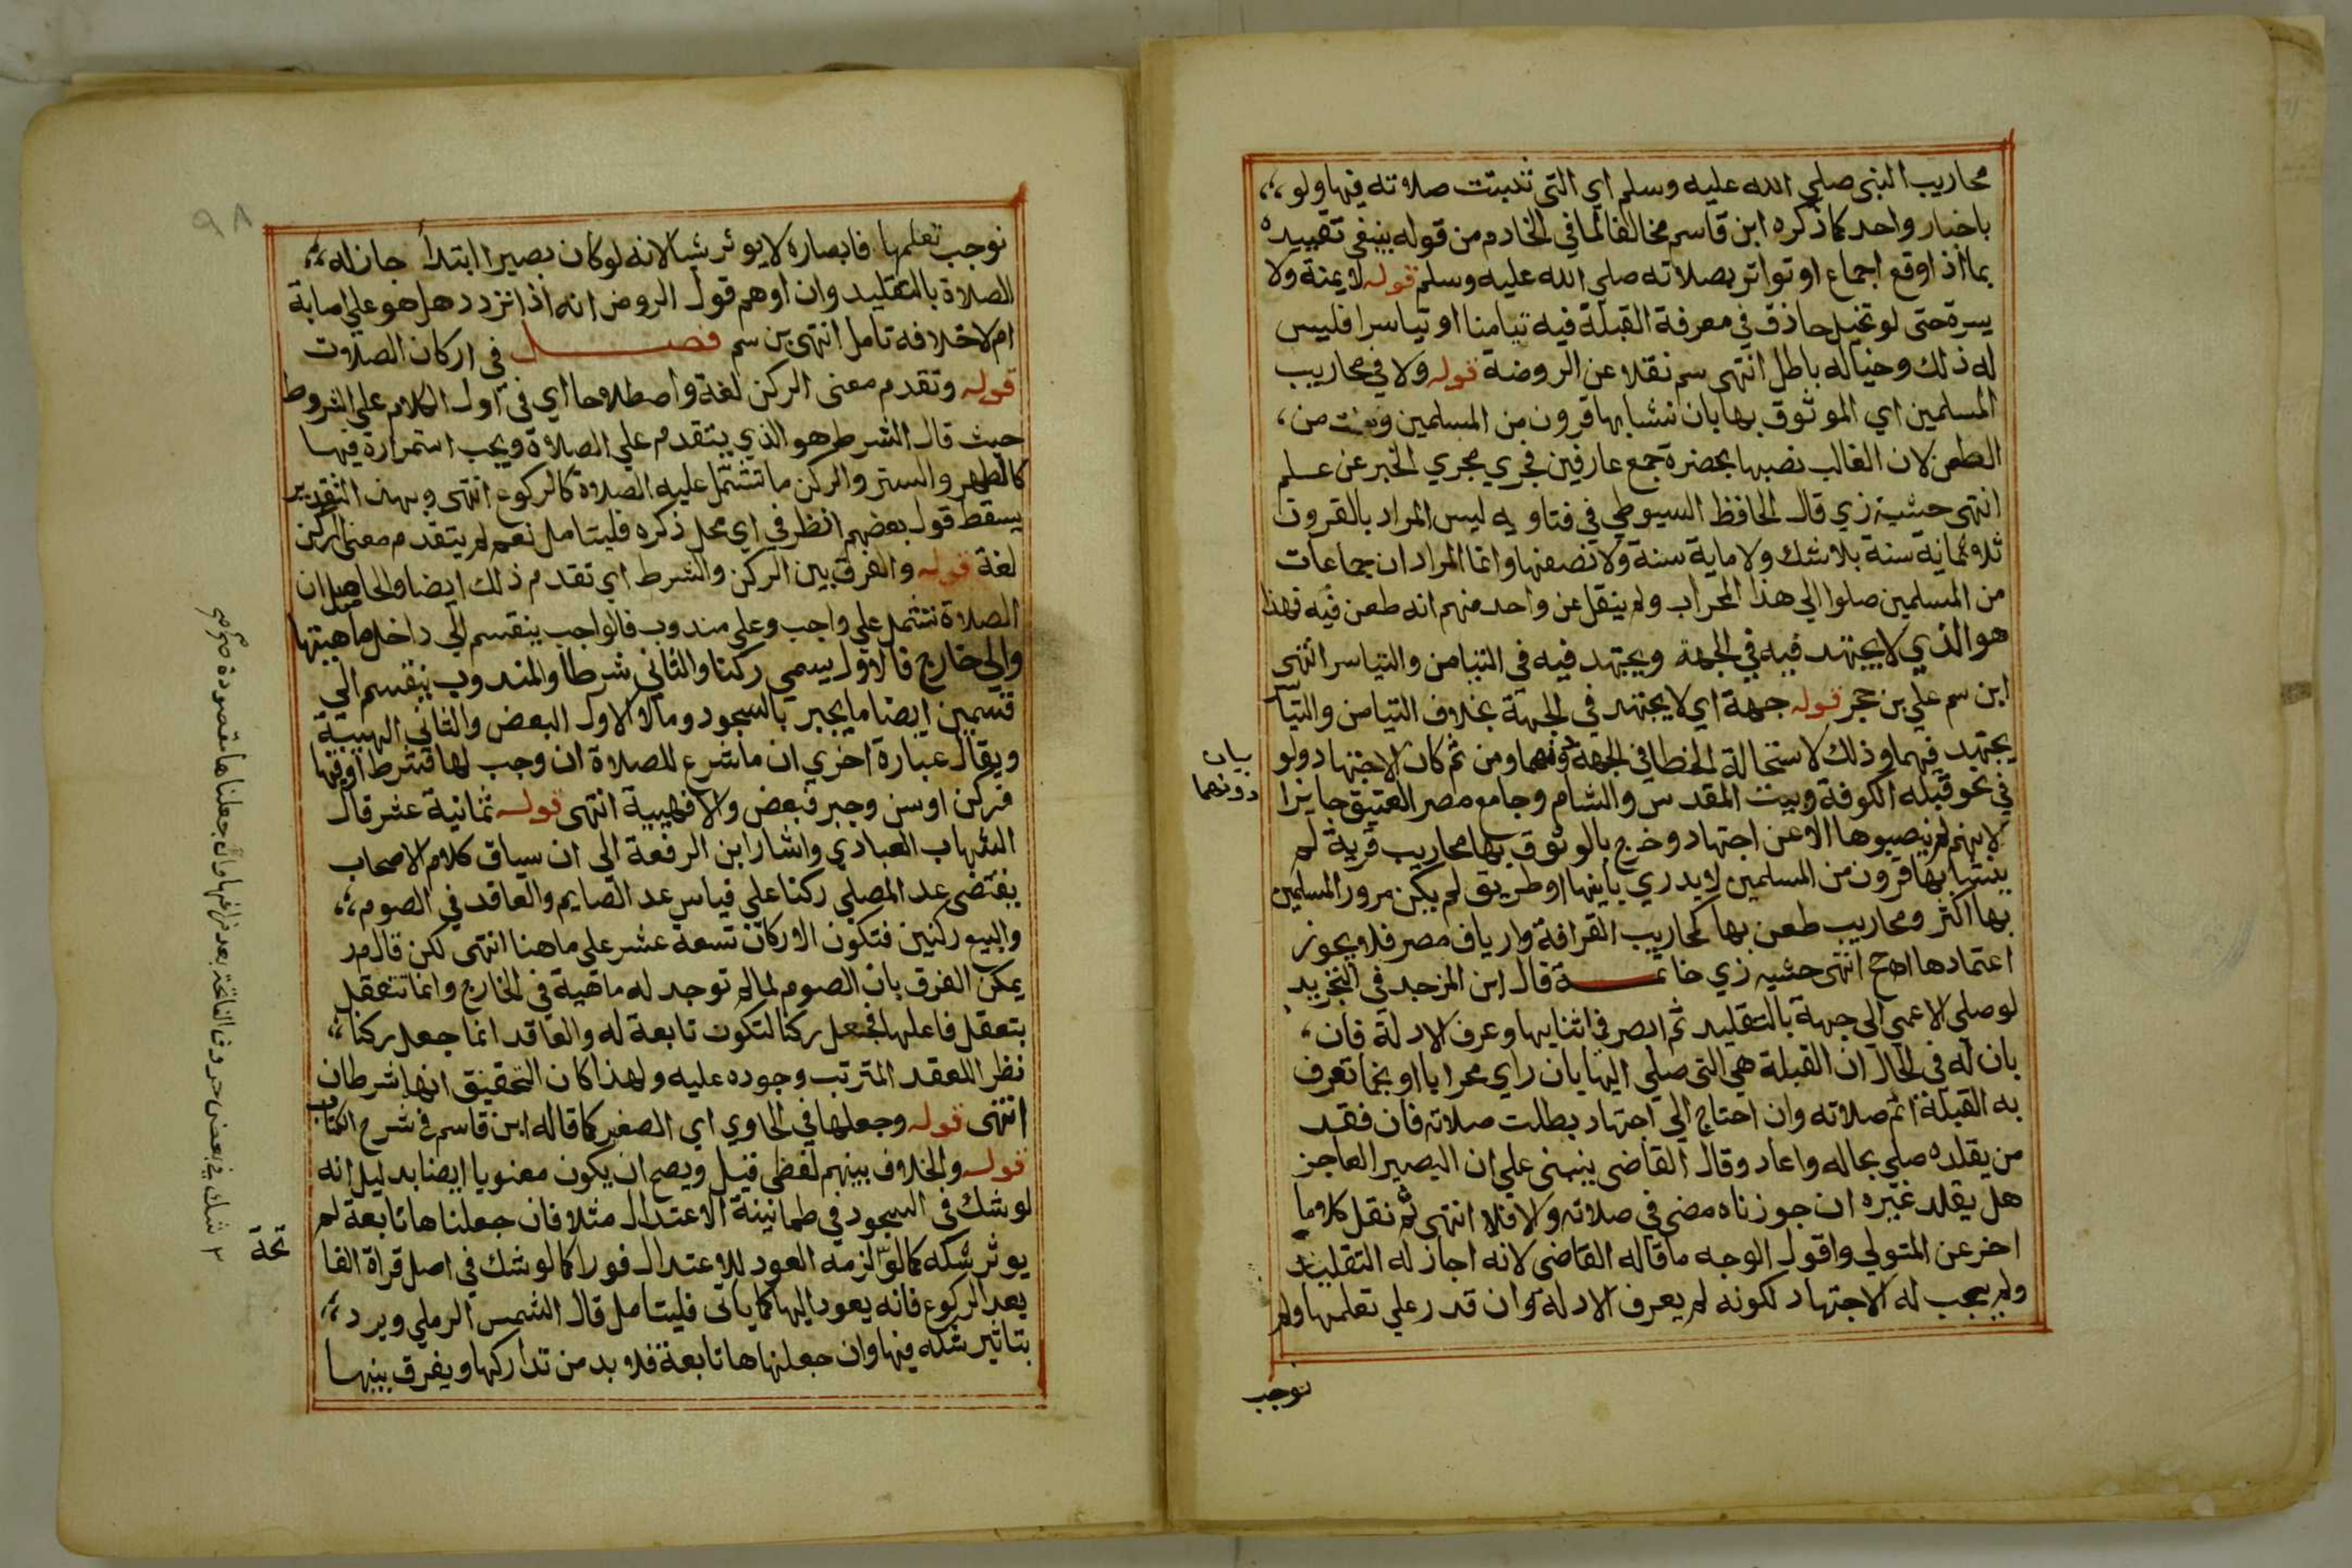 محاريب النبي صلي الله عليه وسلم اي التي تثبتت صلاته فيها ولو
باخبار واحد كما ذكره ابن قاسم مخالفا لما في الخادم من قوله ينبغي تقييده
بما اذا وقع اجماع او تواتر بصلاته صلي الله عليه وسلم قوله لا يمنة ولا
يسرة حتى لو تخيل حاذق في معرفة القبلة فيه تيامنا او تياسرا فليس
له ذلك وخياله باطل انتهى سم نقلا عن الروضة قوله ولا في محاريب
المسلمين اي الموثوق بها بان نشا بها قرون من المسلمين وسلمت من
الطعن لان الغالب نصبها بحضرة جمع عارفين فجري مجري الخبر عن علم
انتهى حشية زي قال الحافظ السيوطي في فتاويه ليس المراد بالقرون
ثلاثماية سنة بلا شك ولا ماية سنة ولا نصفها وانما المراد ان جماعات
من المسلمين صلوا الي هذا المحراب ولم ينقل عن واحد منهم انه طعن فيه فهذا
هو الذي لا يجتهد فيه في الجهة ويجتهد فيه في التيامن والتياسر انتهى
ابن سم علي بن حجر قوله جهة اي لا يجتهد في الجهة بخلاف التيامن والتياسر
يجتهد فيهما وذلك لاستحالة الخطا في الجهة دونهما ومن ثم كان الاجتهاد ولو
بيان
دونهما
في نحو قبلة الكوفة وبيت المقدس والشام وجامع مصر العتيق جايزا
لانهم لم ينصبوها الا عن اجتهاد وخرج بالوثوق بها محاريب قرية لم
ينشا بها قرون من المسلمين لا يدري بانيها او طريق لم يكن مرور المسلمين
بها اكثر ومحاريب طعن بها كمحاريب القرافة وارياف مصر فلا يجوز
اعتمادها اهح انتهى حشيه زي خاتمة قال ابن المزجد في التجريد
لو صلي الاعمي الي جهة بالتقليد ثم ابصر في اثنايها وعرف الادلة فان
بان له في الحال ان القبلة هي التي صلي اليها بان راي محرابا او نجما تعرف
به القبلة اتم صلاته وان احتاج الي اجتهاد بطلت صلاته فان فقد
من يقلده صلي بحاله واعاد وقال القاضي ينبني علي ان البصير العاجز
هل يقلد غيره ان جوزناه مضي في صلاته والا فلا انتهى ثم نقل كلاما
اخر عن المتولي واقول الوجه ما قاله القاضي لانه اجاز له التقليد
ولم يجب له الاجتهاد لكونه لم يعرف الادلة وان قدر علي تعلمها ولم
نوجب
٩٨
نوجب تعلمها فابصاره لا يوثر شيا لانه لو كان بصيرا ابتدأ جاز له
الصلاة بالتقليد وان اوهم قول الروض انه اذا تردد هل هو علي اصابة
ام لا خلافه تامل انتهى بن سم فصل في اركان الصلاة
قوله وتقدم معنى الركن لغة واصطلاحا اي في اول الكلام علي الشروط
حيث قال الشرط هو الذي يتقدم علي الصلاة ويجب استمراره فيها
كالطهر والستر والركن ما تشتمل عليه الصلاة كالركوع انتهى وبهذا التقدير
يسقط قول بعضهم انظر في اي محل ذكره فليتامل نعم لم يتقدم معنى الركن
لغة قوله والفرق بين الركن والشرط اي تقدم ذلك ايضا والحاصل ان
الصلاة تشتمل علي واجب وعلي مندوب فالواجب ينقسم الي داخل ماهيتها
والي خارج فالاول يسمي ركنا والثاني شرطا والمندوب ينقسم الي
قسمين ايضا ما يجبر بالسجود وما لا الاول البعض والثاني الهيئة
ويقال عبارة اخري ان ما شرع للصلاة ان وجب لها فشرط او فيها
فركن او سن وجبر فبعض والا فهيية انتهى قوله ثمانية عشر قال
الشهاب العبادي واشار ابن الرفعة الى ان سياق كلام الاصحاب
يقتضي عد المصلي ركنا علي قياس عد الصايم والعاقد في الصوم
والبيع ركنين فتكون الاركان تسعة عشر علي ما هنا انتهى لكن قال مر
يمكن الفرق بان الصوم لما لم توجد له ماهية في الخارج وانما تتعقل
بتعقل فاعلها فجعل ركنا لتكون تابعة له والعاقد انما جعل ركنا
نظر اللعقد المترتب وجوده عليه ولهذا كان التحقيق انها شرطان
انتهى قوله وجعلها في الحاوي اي الصغير كما قاله ابن قاسم في شرح الكتاب
قوله والخلاف بينهم لفظي قيل ويصح ان يكون معنويا ايضا بدليل انه
لو شك في السجود في طمانينة الاعتدال مثلا فان جعلناها تابعة لم
يوثر شكه كما لو لزمه العود للاعتدال فورا كما لو شك في اصل قراة الفا
تحة
بعد الركوع فانه يعود اليها كما ياتي فليتامل قال الشمس الرملي ويرد
بتاثير شكه فيها وان جعلنها هاتابعة فلا بد من تداركها ويفرق بينها
٢ شك في بعض حروف الفاتحة بعد فراغها وان جعلناها مقصودة